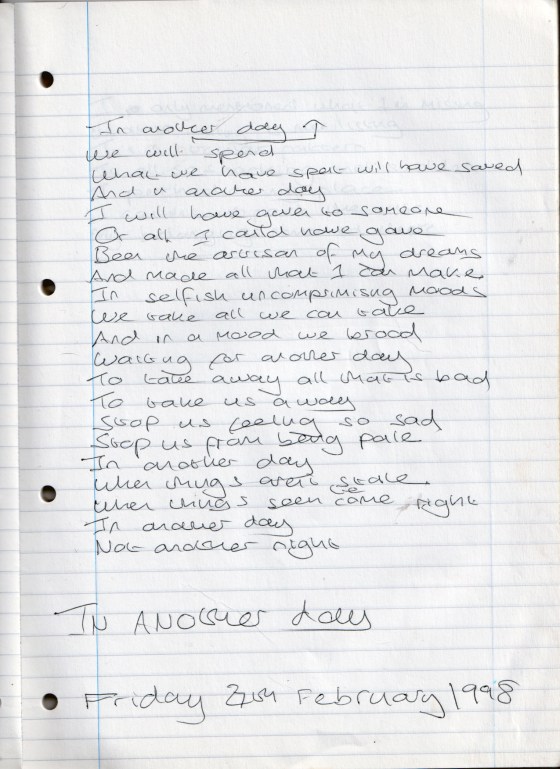 In another day ↑
We will spend
What we have spent will have saved
And in another day
I will have given to someone
Or all I could have gave
Been the artisan of my dreams
And made all that I can make
In selfish uncomprimising moods
We take all we can take
And in a mood we brood
Waiting for another day
To take away all that is bad
To take us away
Stop us feeling so sad
Stop us from being pale
In another day
When things aren't stale
When things seem to come right
In another day
Not another night
IN ANOther day
Friday 27th February 1998